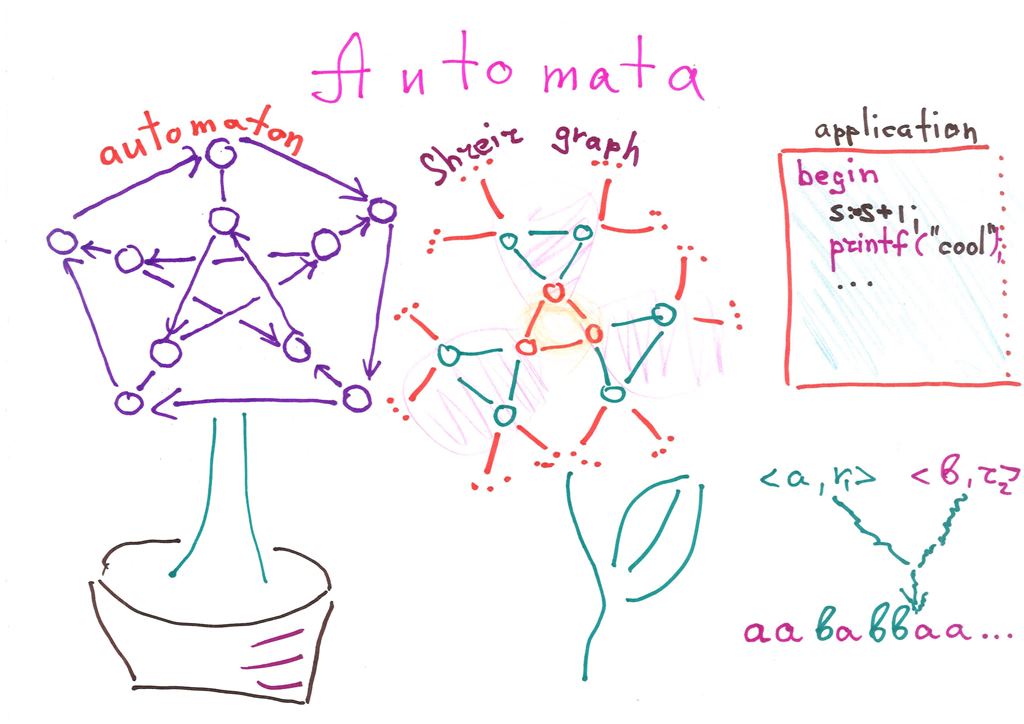 Automata
automaton
Shreir graph
application
begin
s:=s+1;
printf("cool");
...
<a, r₁> <b, r₂>
aababbaa...